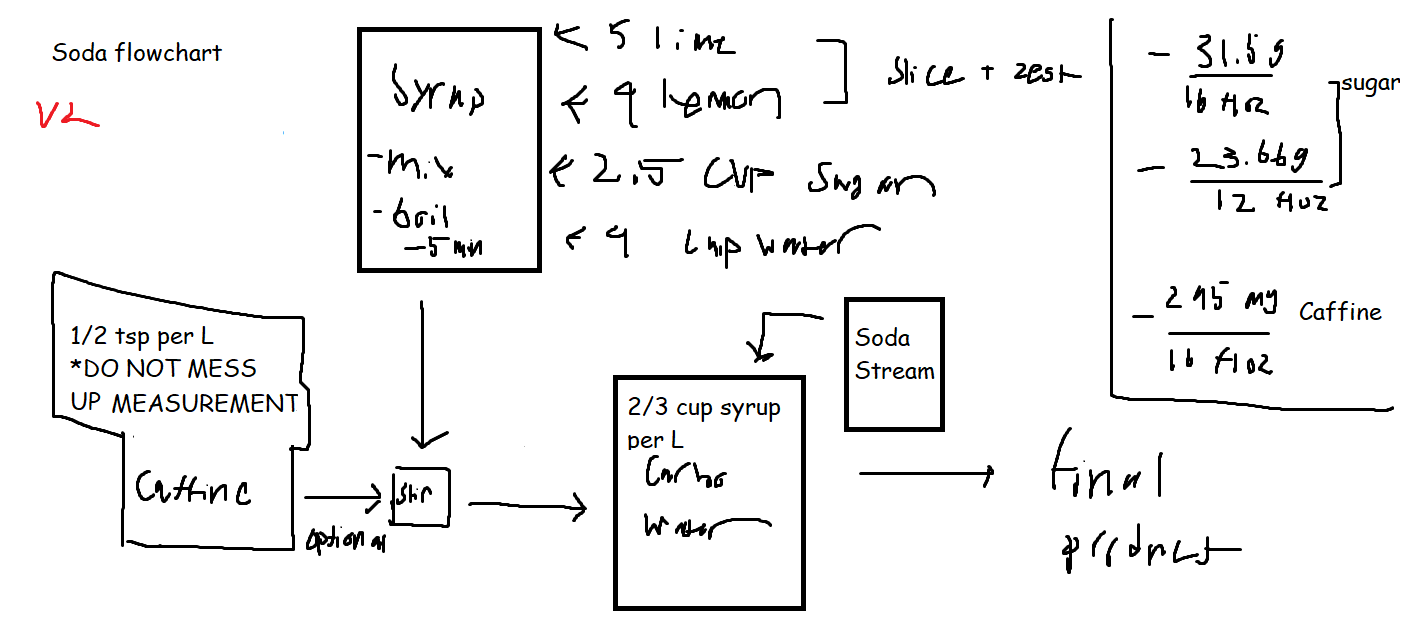 Soda flowchart
V2
Syrup
-mix
-boil
-5 min
< 5 lime
< 4 lemon
slice + zest
< 2.5 cup sugar
< 4 cup water
- 31.5g
16 floz
- 23.66g
12 floz
sugar
- 245 mg
16 floz
Caffine
1/2 tsp per L
*DO NOT MESS
UP MEASUREMENT
Caffine
optional
stir
2/3 cup syrup
per L
Carbo
water
Soda
Stream
final
product